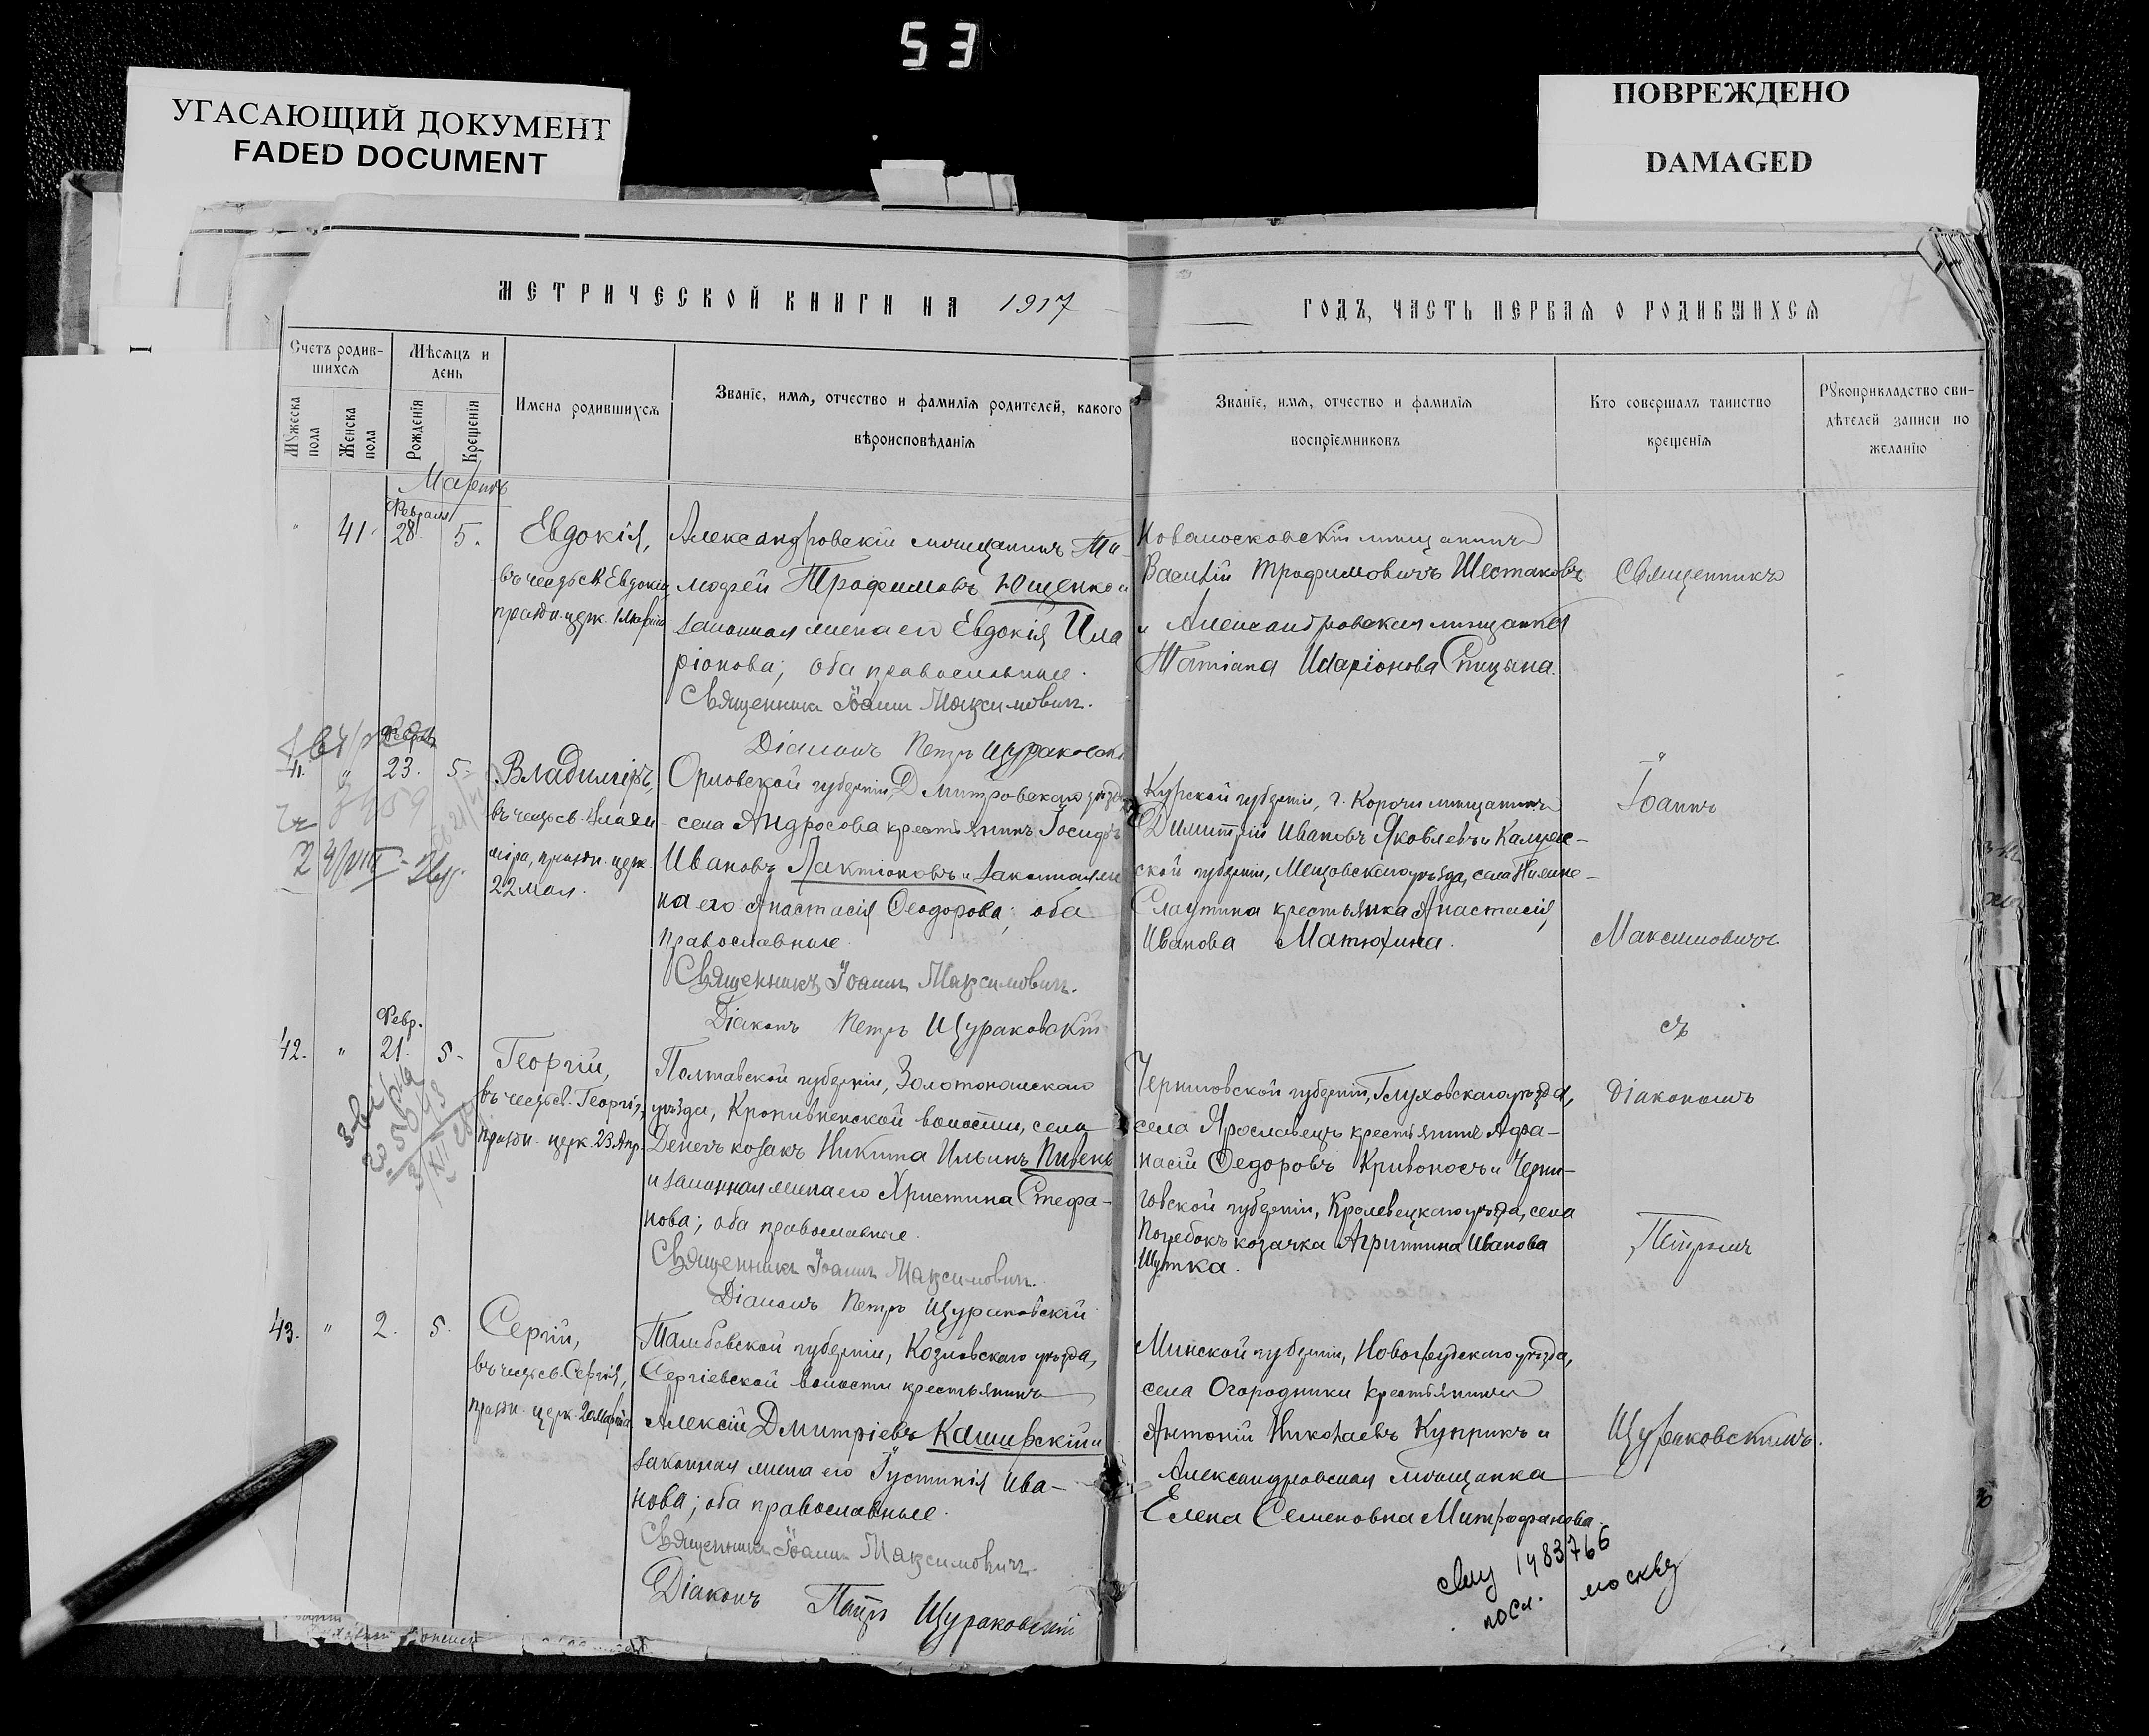 53
УГАСАЮЩИЙ ДОКУМЕНТ
FADED DOCUMENT
ПОВРЕЖДЕНО
DAMAGED
МЕТРИЧЕСКОЙ КНИГИ НА 1917
ГОДЪ, ЧАСТЬ ПЕРВАЯ О РОДИВШИХСЯ
Счетъ родив-
шихся
Мужеска пола
Женска пола
Мѣсяцъ и
день
Рожденія
Крещенія
Имена родившихся
Званіе, имя, отчество и фамилія родителей, какого
вѣроисповѣданія
Званіе, имя, отчество и фамилія
воспріемниковъ
Кто совершалъ таинство
крещенія
Рукоприкладство сви-
дѣтелей записи по
желанію
Мартъ
Февраля
" 41 28. 5.
Евдокія,
въ честь св. Евдокіи,
праздн. церк. 1 Марта
Александровскій мѣщанинъ Ти-
моѳей Трофимовъ Ющенко и
законная жена его Евдокія Ила
ріонова; оба православные.
Священникъ Іоаннъ Максимовичъ.
Діаконъ Петръ Щураковскій
Новомосковскій мѣщанинъ
Василій Трофимовичъ Шестаковъ
и Александровская мѣщанка
Татіана Иларіонова Спицына.
Священникъ
Февр.
41. " 23. 5.
Владиміръ,
въ честь св. Влади-
міра, праздн. церк.
22 мая.
Орловской губерніи, Дмитровскаго уѣзда
села Андросова крестьянинъ Іосифъ
Ивановъ Лактіоновъ и законная же
на его Анастасія Ѳеодорова; оба
православные.
Священникъ Іоаннъ Максимовичъ.
Діаконъ Петръ Щураковскій
Курской губерніи, г. Корочи мѣщанинъ
Димитрій Ивановъ Яковлевъ и Калуж-
ской губерніи, Мещовскаго уѣзда, села
крестьянка Анастасія
Иванова Матюхина.
Іоаннъ
Максимовичъ
съ
Февр.
42. " 21. 5.
Георгій,
въ честь св. Георгія,
праздн. церк. 23 Апр.
Полтавской губерніи, Золотоношскаго
уѣзда, Кропивненской волости, села
козакъ Никита Ильинъ Пивень
и законная жена его Христина Стефа-
нова; оба православные.
Священникъ Іоаннъ Максимовичъ.
Діаконъ Петръ Щураковскій
Черниговской губерніи, Глуховскаго уѣзда,
села Ярославецъ крестьянинъ Афа-
насій Федоровъ Кривоносъ и Черни-
говской губерніи, Кролевецкаго уѣзда, села
Погребокъ козачка Агриппина Иванова
Шутка.
Діакономъ
Петромъ
43. " 2. 5.
Сергій,
въ честь св. Сергія,
праздн. церк. 20 Марта
Тамбовской губерніи, Козловскаго уѣзда,
Сергіевской волости крестьянинъ
Алексій Дмитріевъ Каширскій и
законная жена его Іустинія Ива-
нова; оба православные.
Священникъ Іоаннъ Максимовичъ.
Діаконъ Петръ Щураковскій
Минской губерніи, Новогрудскаго уѣзда,
села Огородники крестьянинъ
Антоній Николаевъ Куприкъ и
Александровская мѣщанка
Елена Семеновна Митрофанова.
Щураковскимъ.
1483766
посл. Москву